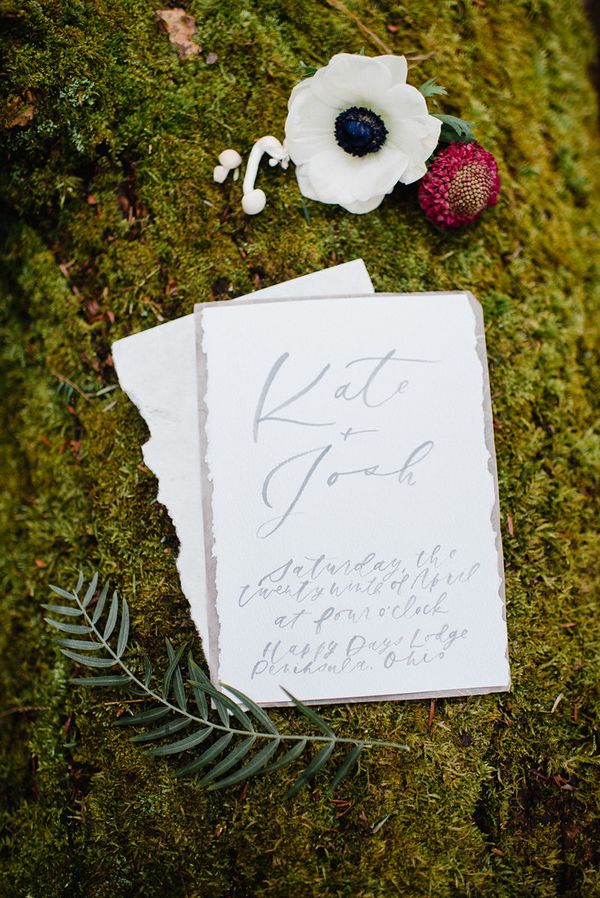 Kate
+
Josh
Saturday, the
twenty ninth of April
at four o'clock
Happy Days Lodge
Peninsula, Ohio